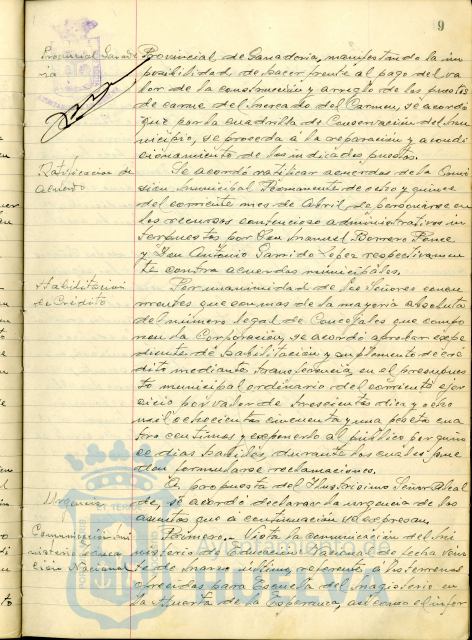 9
Provincial Ganade
ria
Provincial de Ganaderia, manifestando la im
posibilidad de hacer frente al pago del va
lor de la construcción y arreglo de los puestos
de carne del Mercado del Carmen, se acordó
que por la cuadrilla de Conservación del Mu
nicipio, se proceda á la reparación y acondi
cionamiento de los indicados puestos.
Ratificacion de
acuerdo
Se acordó ratificar acuerdos de la Comi
sión Municipal Permanente de ocho y quince
del corriente mes de Abril de personarse en
los recursos contencioso administrativos in
terpuestos por Don Manuel Borrero Ponce
y Don Antonio Garrido Lopez respectivamen
te contra acuerdos municipales.
Habilitacion
de Crédito
Por unanimidad de los señores concu
rrentes que son mas de la mayoria absoluta
del número legal de Concejales que compo
nen la Corporación, se acordó aprobar expe
diente de habilitación y suplemento de cre
dito mediante transferencia en el presupues
to municipal ordinario del corriente ejer
cicio por valor de trescientas diez y ocho
mil ochocientas cincuenta y una peseta cua
tro centimos y exponerlo al público por quin
ce dias habiles, durante los cuales pue
den formularse reclamaciones.
Urgencia
A propuesta del Ilustrisimo Señor Alcal
de, se acordó declarar la urgencia de los
asuntos que á continuación se expresan.
Comunicación mi
nisterio Educa
ción Nacional
Primero.- Vista la comunicación del Mi
nisterio de Educación Nacional de fecha vein
te de marzo ultimo, referente á los terrenos
ofrecidos para Escuela del Magisterio en
la Huerta de la Esperanza, asi como el infor